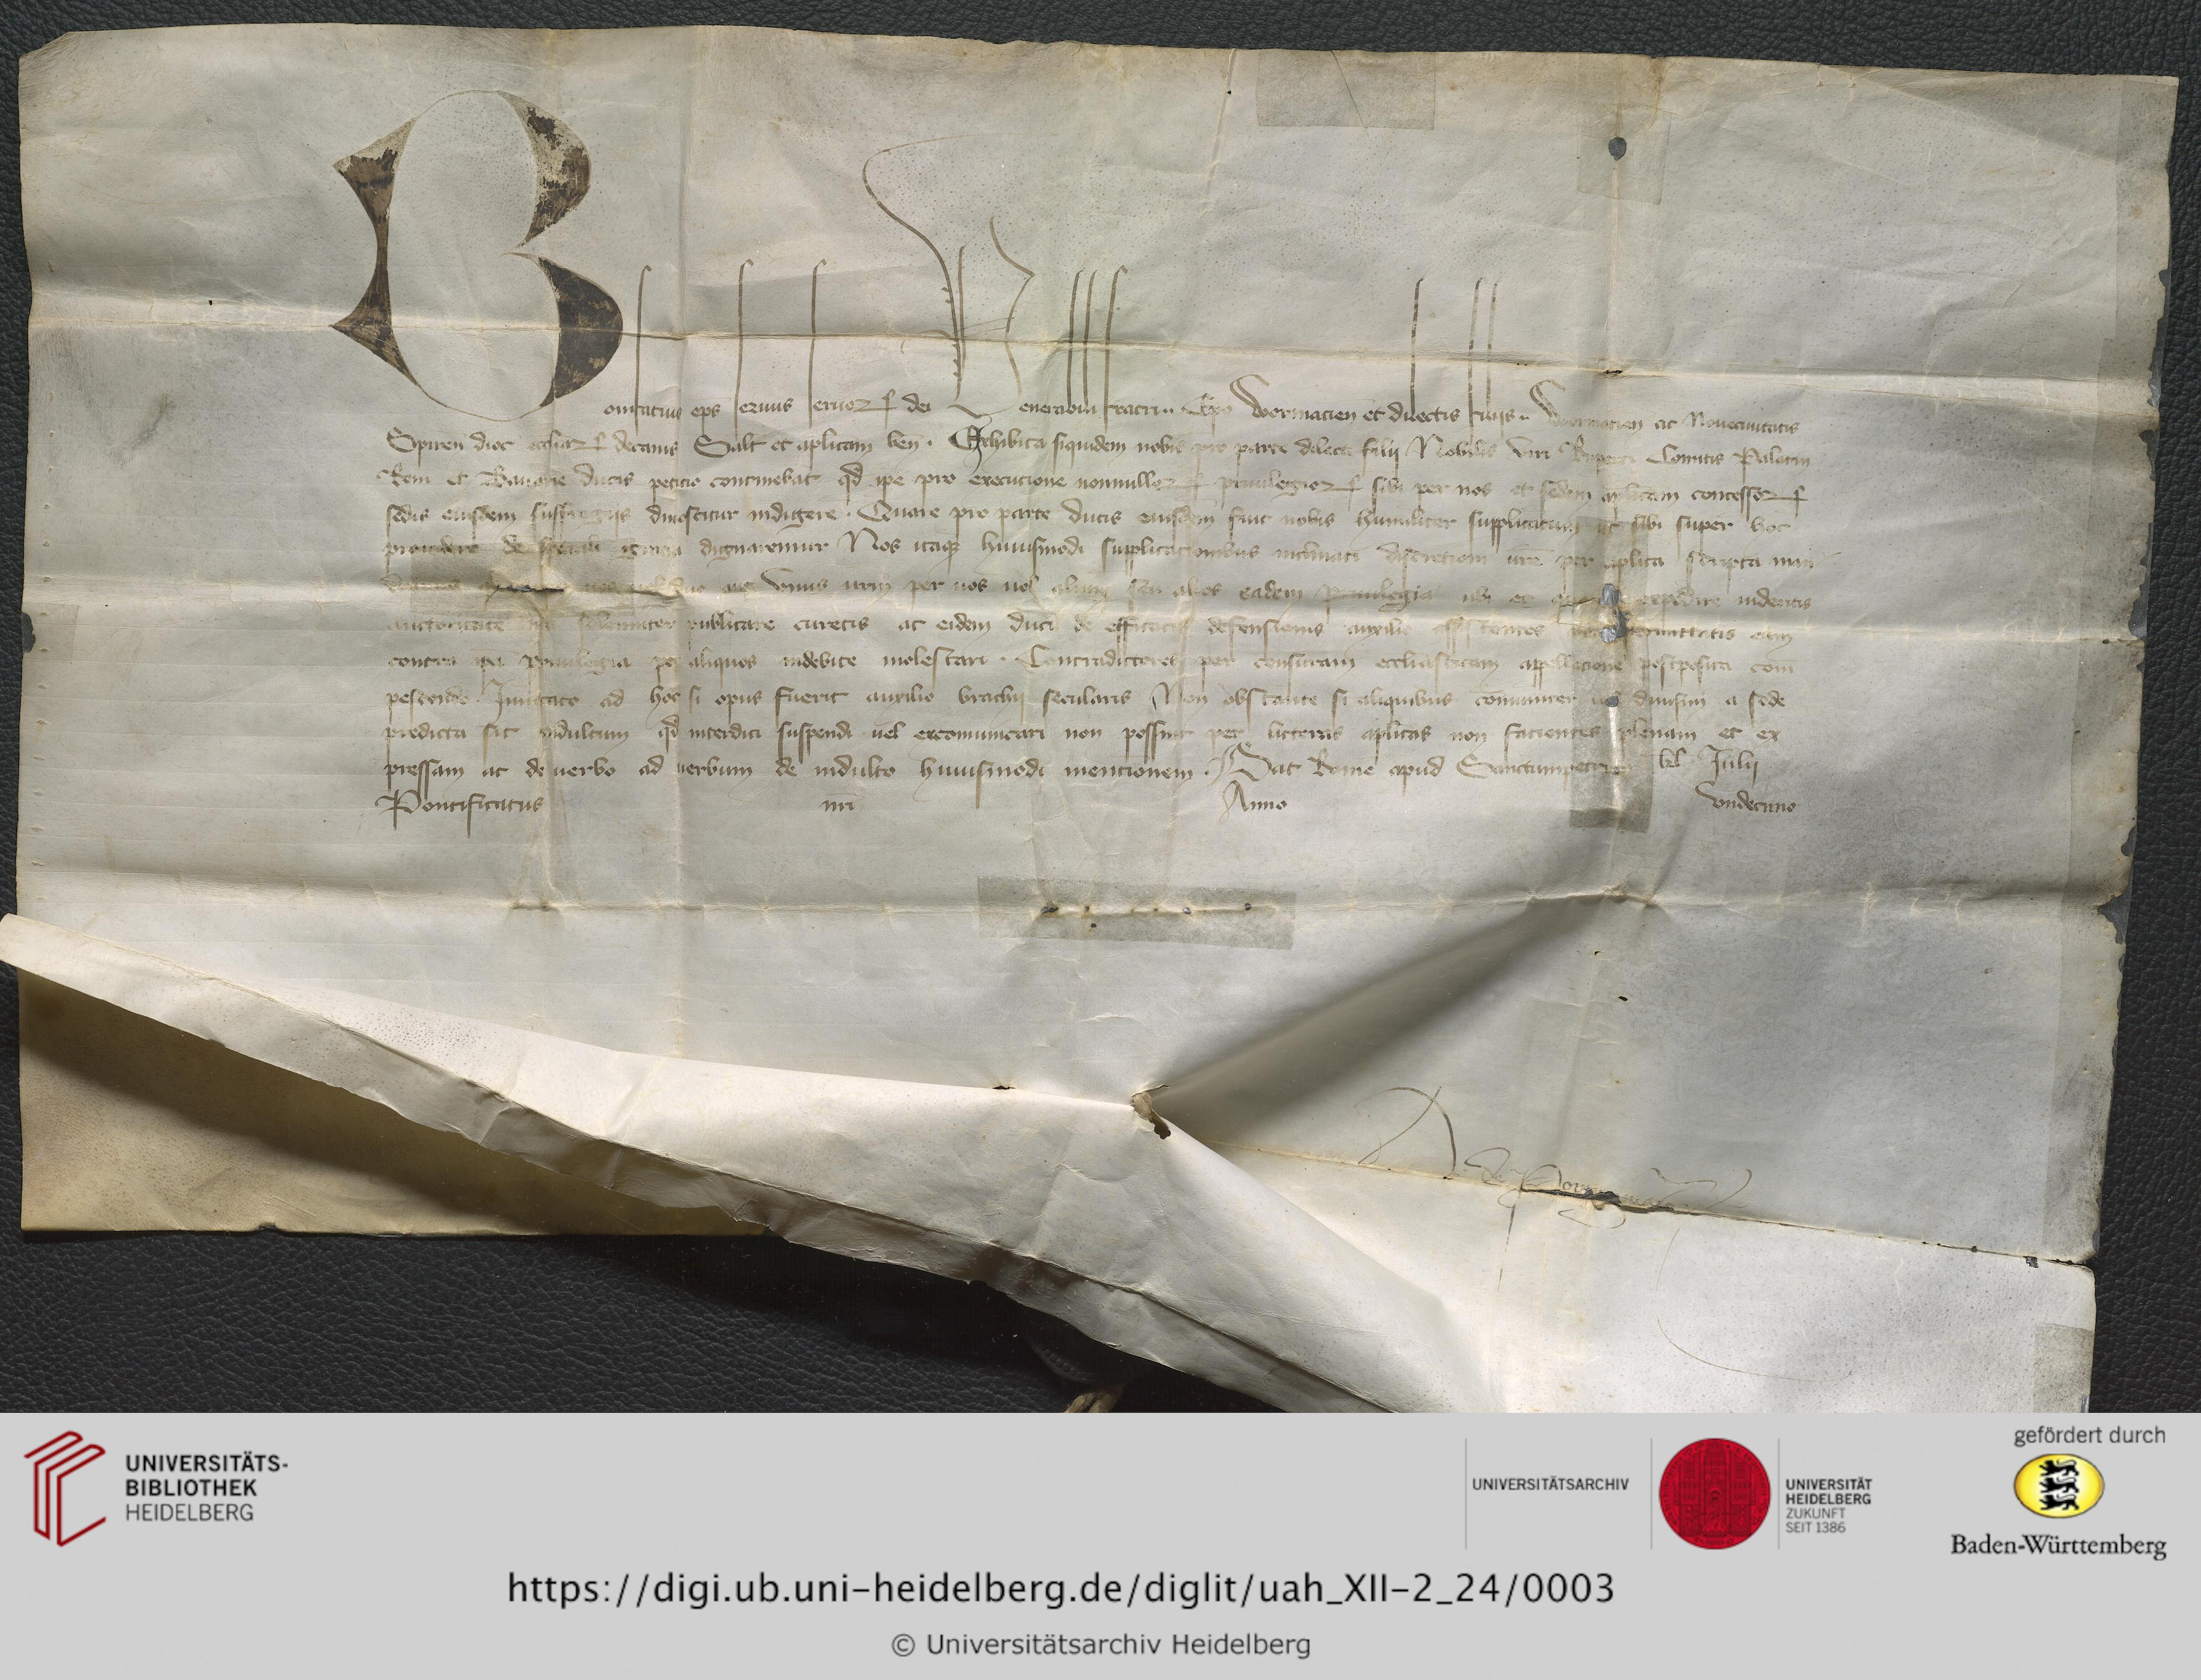 Bonifatius eps seruus seruoꝝ dei Venerabili fratri .. Epo Wormacien et dilectis filijs .. Wormacien ac Nouecivitatis
Spiren dioc eccliaꝝ decanis Salt et aplicam ben . Exhibita siquidem nobis pro parte dilecti filij Nobilis viri Ruperti Comitis Palatin
Reni et Bauarie ducis peticio continebat qd ipe pro execucione nonnulloꝝ priuilegioꝝ sibi per nos et sedem aplicam concessoꝝ
sedis eiusdem suffragijs dinoscitur indigere . Quare pro parte ducis eiusdem fuit nobis humiliter supplicatum ut sibi super hoc
prouidere de speciali gracia dignaremur Nos itaqꝫ huiusmodi supplicationibus inclinati discretioni vre per aplica scripta man
duo aut vnus vrm per vos uel alium seu alios eadem priuilegia ubi et expedire videritis
auctoritate nra solemniter publicare curetis ac eidem duci de efficacis defensionis auxilio assistentes permittatis eum
contra ipa priuilegia per aliquos indebite molestari . Contradictores per censuram eccliasticam appellatione postposita com
pescendo Inuocato ad hoc si opus fuerit auxilio brachij secularis Non obstante si aliquibus communiter uel diuisim a sede
predicta sit indultum qd interdici suspendi uel excomunicari non possint per litteras aplicas non facientes plenam et ex
pressam ac de uerbo ad uerbum de indulto huiusmodi mentionem . Dat Rome apud Sanctumpetrum kl Julij
Pontificatus nri Anno vndecimo
UNIVERSITÄTS-
BIBLIOTHEK
HEIDELBERG
UNIVERSITÄTSARCHIV
UNIVERSITÄT
HEIDELBERG
ZUKUNFT
SEIT 1386
gefördert durch
Baden-Württemberg
https://digi.ub.uni-heidelberg.de/diglit/uah_XII-2_24/0003
© Universitätsarchiv Heidelberg